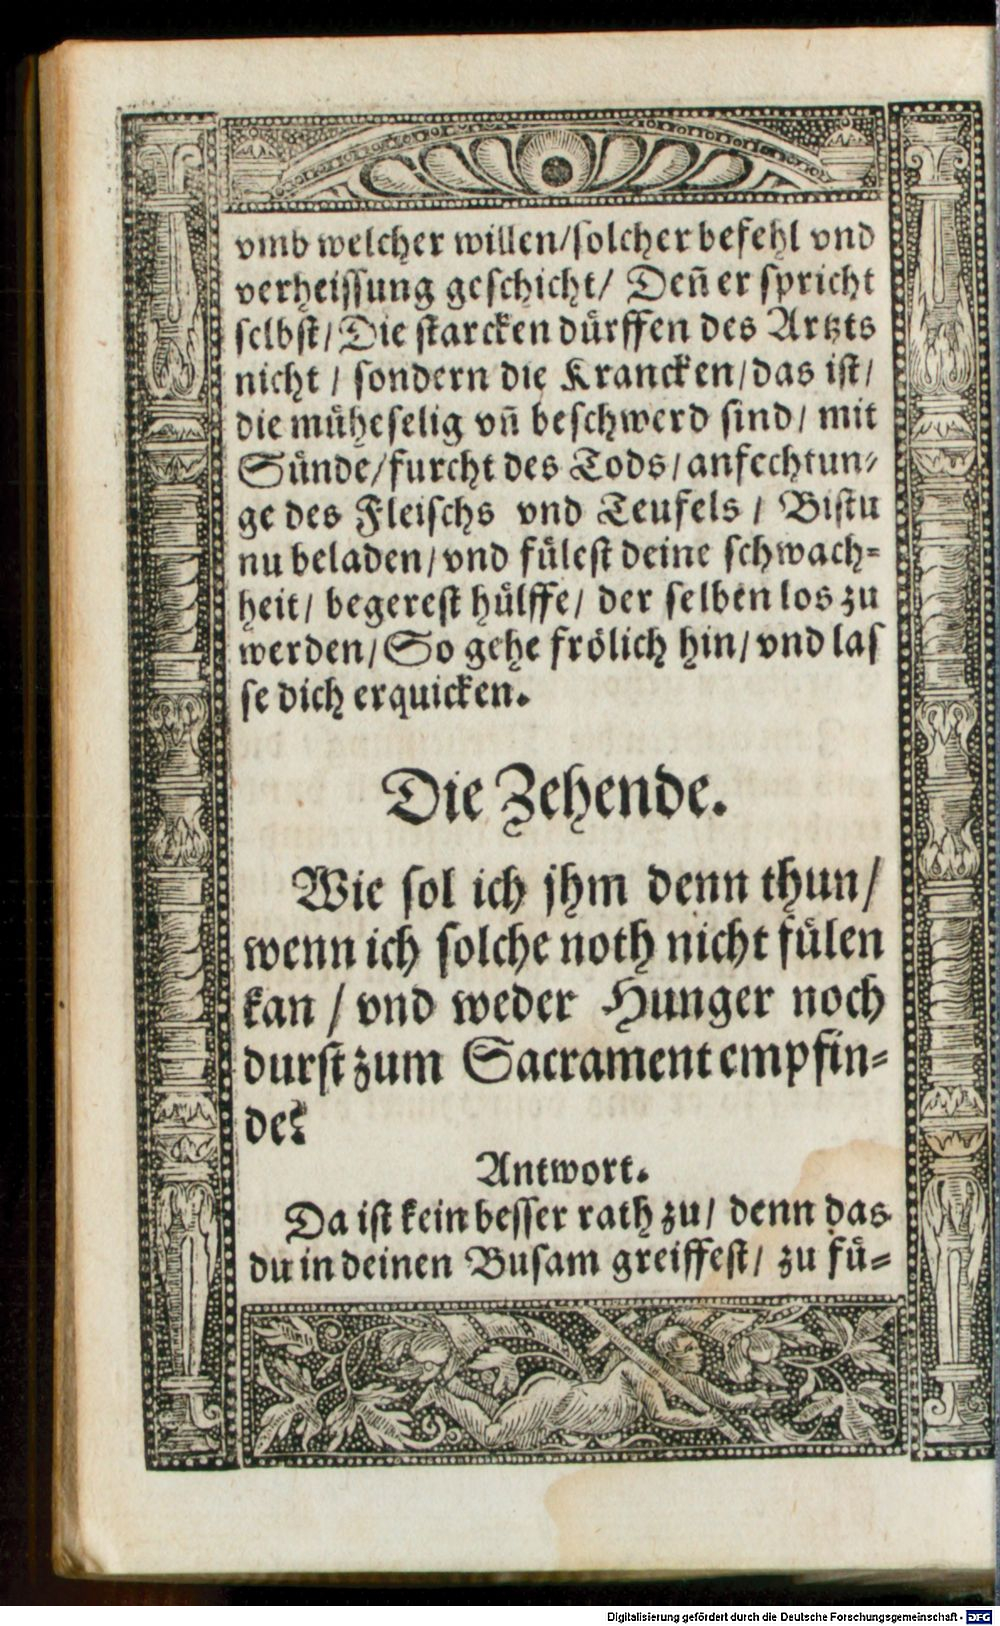 vmb welcher willen/solcher befehl vnd
verheissung geschicht/ Deñ er spricht
selbst/Die starcken dürffen des Artzts
nicht / sondern die Krancken/das ist/
die müheselig vñ beschwerd sind/ mit
Sünde/furcht des Tods/anfechtun⸗
ge des Fleischs vnd Teufels / Bistu
nu beladen/vnd fülest deine schwach⸗
heit/ begerest hülffe/ der selben los zu
werden/So gehe frölich hin/vnd las
se dich erquicken.
Die Zehende.
Wie sol ich jhm denn thun/
wenn ich solche noth nicht fülen
kan / vnd weder Hunger noch
durst zum Sacrament empfin⸗
de?
Antwort.
Da ist kein besser rath zu/ denn das
du in deinen Busam greiffest/ zu fü⸗
Digitalisierung gefördert durch die Deutsche Forschungsgemeinschaft - DFG